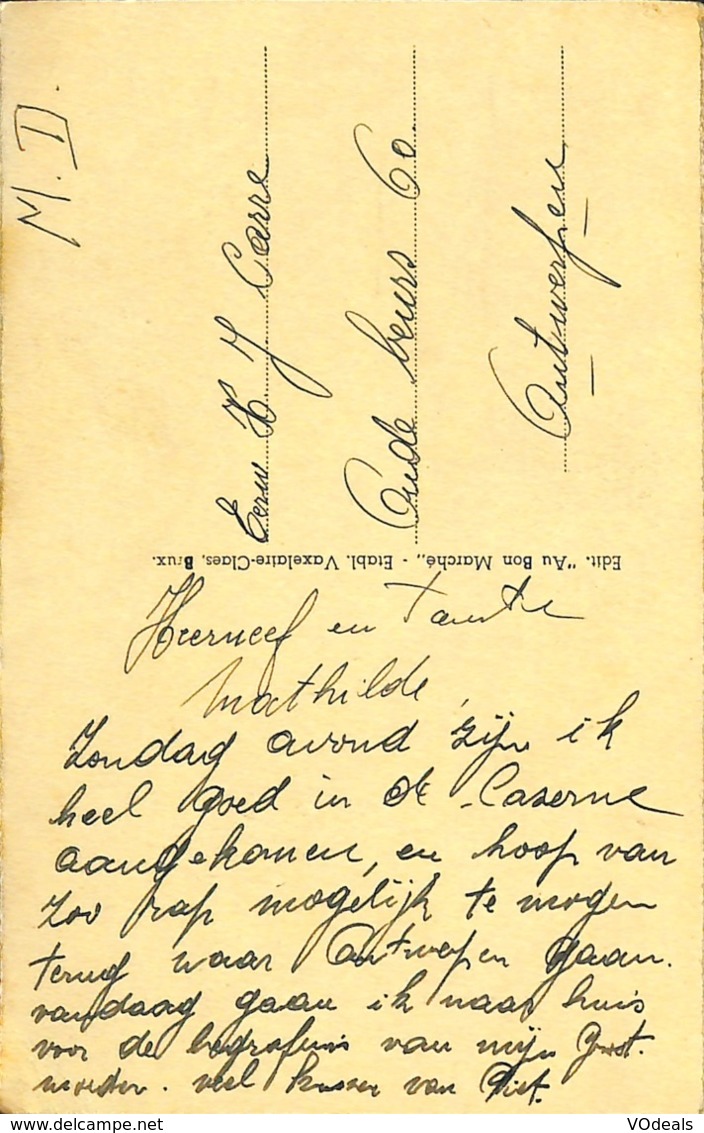 M. D.
H J Carre
Oude beurs 60.
Antwerpen
Edit. "Au Bon Marché„ - Etabl. Vaxelaire-Claes, Brux.
en Tante
Mathilde,
Zondag avond zijn ik
heel goed in de Caserne
aangekomen, en hoop van
zoo rap mogelijk te mogen
terug naar Antwerpen gaan.
vandaag gaan ik naar huis
voor de begrafenis van mijn Groot.
moeder. veel kussen van Piet.
VOdeals